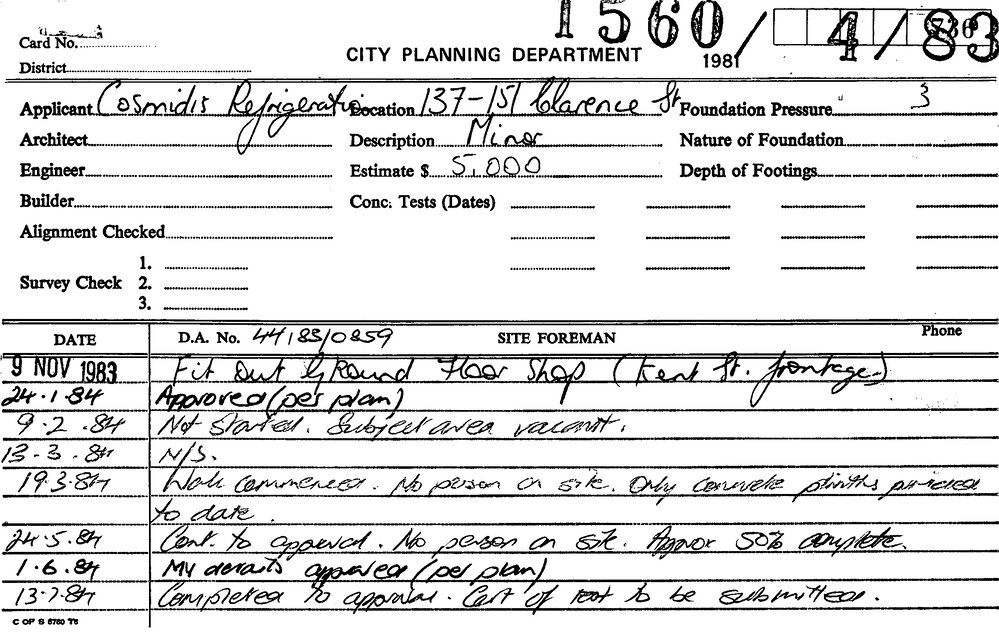 1560/4/83
Card No.
CITY PLANNING DEPARTMENT 1981
District
Applicant Cosmidis Refrigeration Location 137-151 Clarence St Foundation Pressure 3
Architect Description Minor Nature of Foundation
Engineer Estimate $ 5,000 Depth of Footings
Builder Conc. Tests (Dates)
Alignment Checked
1.
Survey Check 2.
3.
DATE D.A. No. 44/83/0859 SITE FOREMAN Phone
9 NOV 1983 Fit Out Ground Floor Shop (Kent St. frontage)
24.1.84 Approved (per plan)
9.2.84 Not Started. Subject area vacant.
13.3.84 N/S.
19.3.84 Work commenced. No person on site. Only concrete plinths
to date.
24.5.84 Cont. to approval. No person on site. Approx 50% complete.
1.6.84 MV details approved (per plan)
13.7.84 Completed to approval. Cert of to be submitted.
C OF S 6760 T6